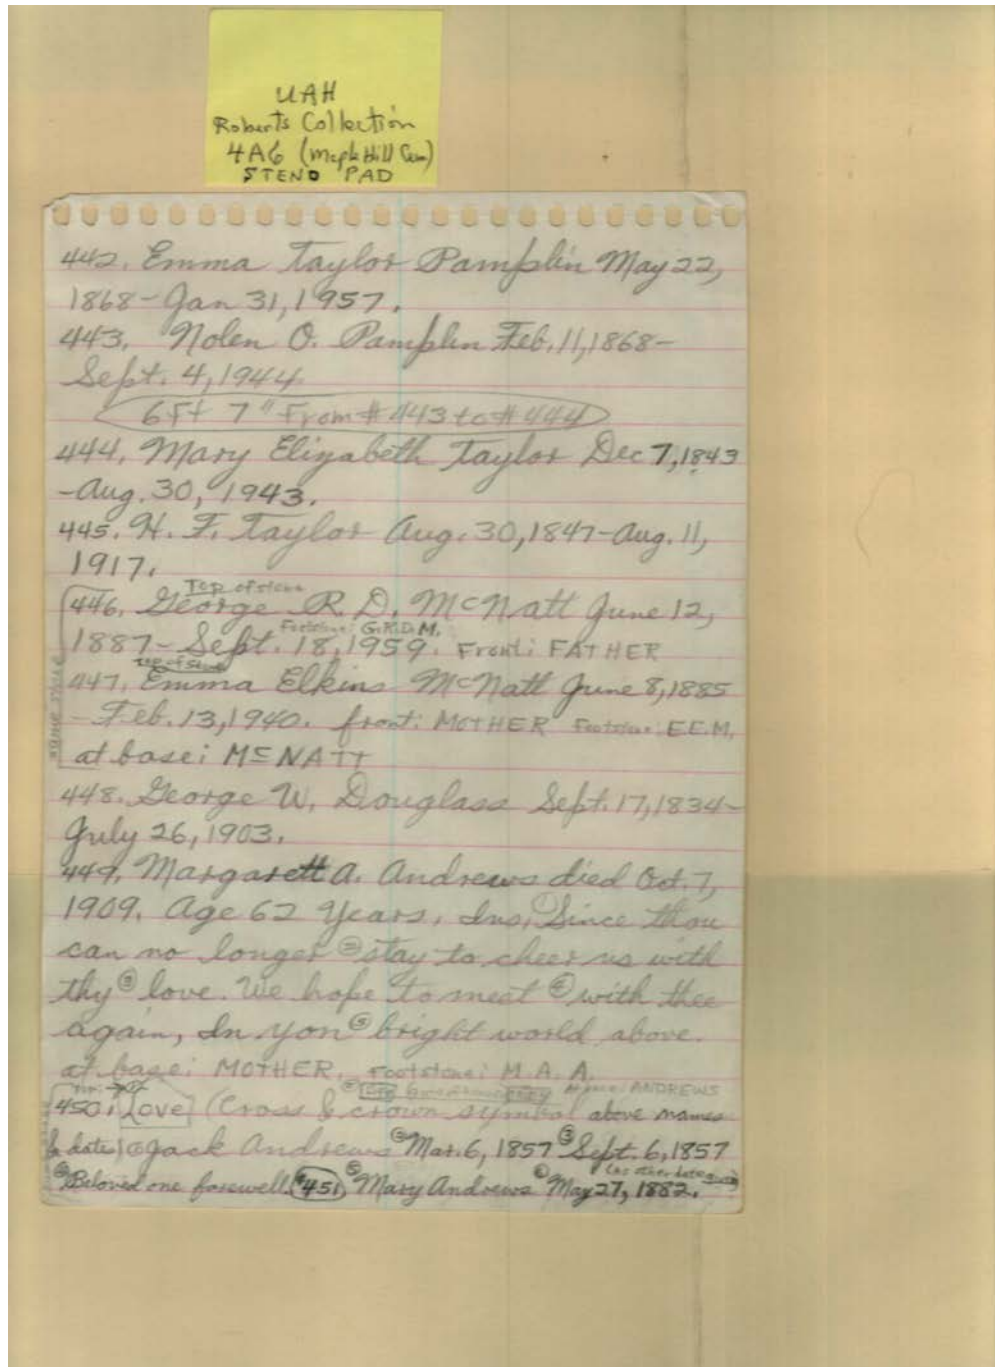 UAH
Roberts Collection
4A6 (Maple Hill Cem)
STENO PAD
442. Emma Taylor Pamplin May 22,
1868-Jan 31, 1957.
443. Nolen O. Pamplin Feb. 11, 1868-
Sept. 4, 1944.
6 Ft 7" From #443 to #444
444. Mary Elizabeth Taylor Dec 7, 1843
-Aug. 30, 1943.
445. H. F. Taylor Aug. 30, 1847-Aug. 11,
1917.
Top of stone
446. George R. D. McNatt June 12,
Footstone: G.R.D.M.
1887- Sept. 18, 1959. Front: FATHER
Top of stone
447. Emma Elkins McNatt June 8, 1885
- Feb. 13, 1940. front: MOTHER Footstone: E.E.M.
same stone
at base: McNATT
448. George W. Douglass Sept. 17, 1834-
July 26, 1903.
449. Margarett A. Andrews died Oct. 7,
1909. Age 62 Years. Ins. ① Since thou
can no longer ② stay to cheer us with
thy ③ love. We hope to meet ④ with thee
again, In yon ⑤ bright world above.
at base: MOTHER. Footstone: M. A. A.
ANDREWS
450. Love (Cross & crown symbol above names
& dates) ① Jack Andrews ② Mar. 6, 1857 ③ Sept. 6, 1857
(no other date given)
④ Beloved one farewell. #451 ⑤ Mary Andrews ⑥ May 27, 1882.